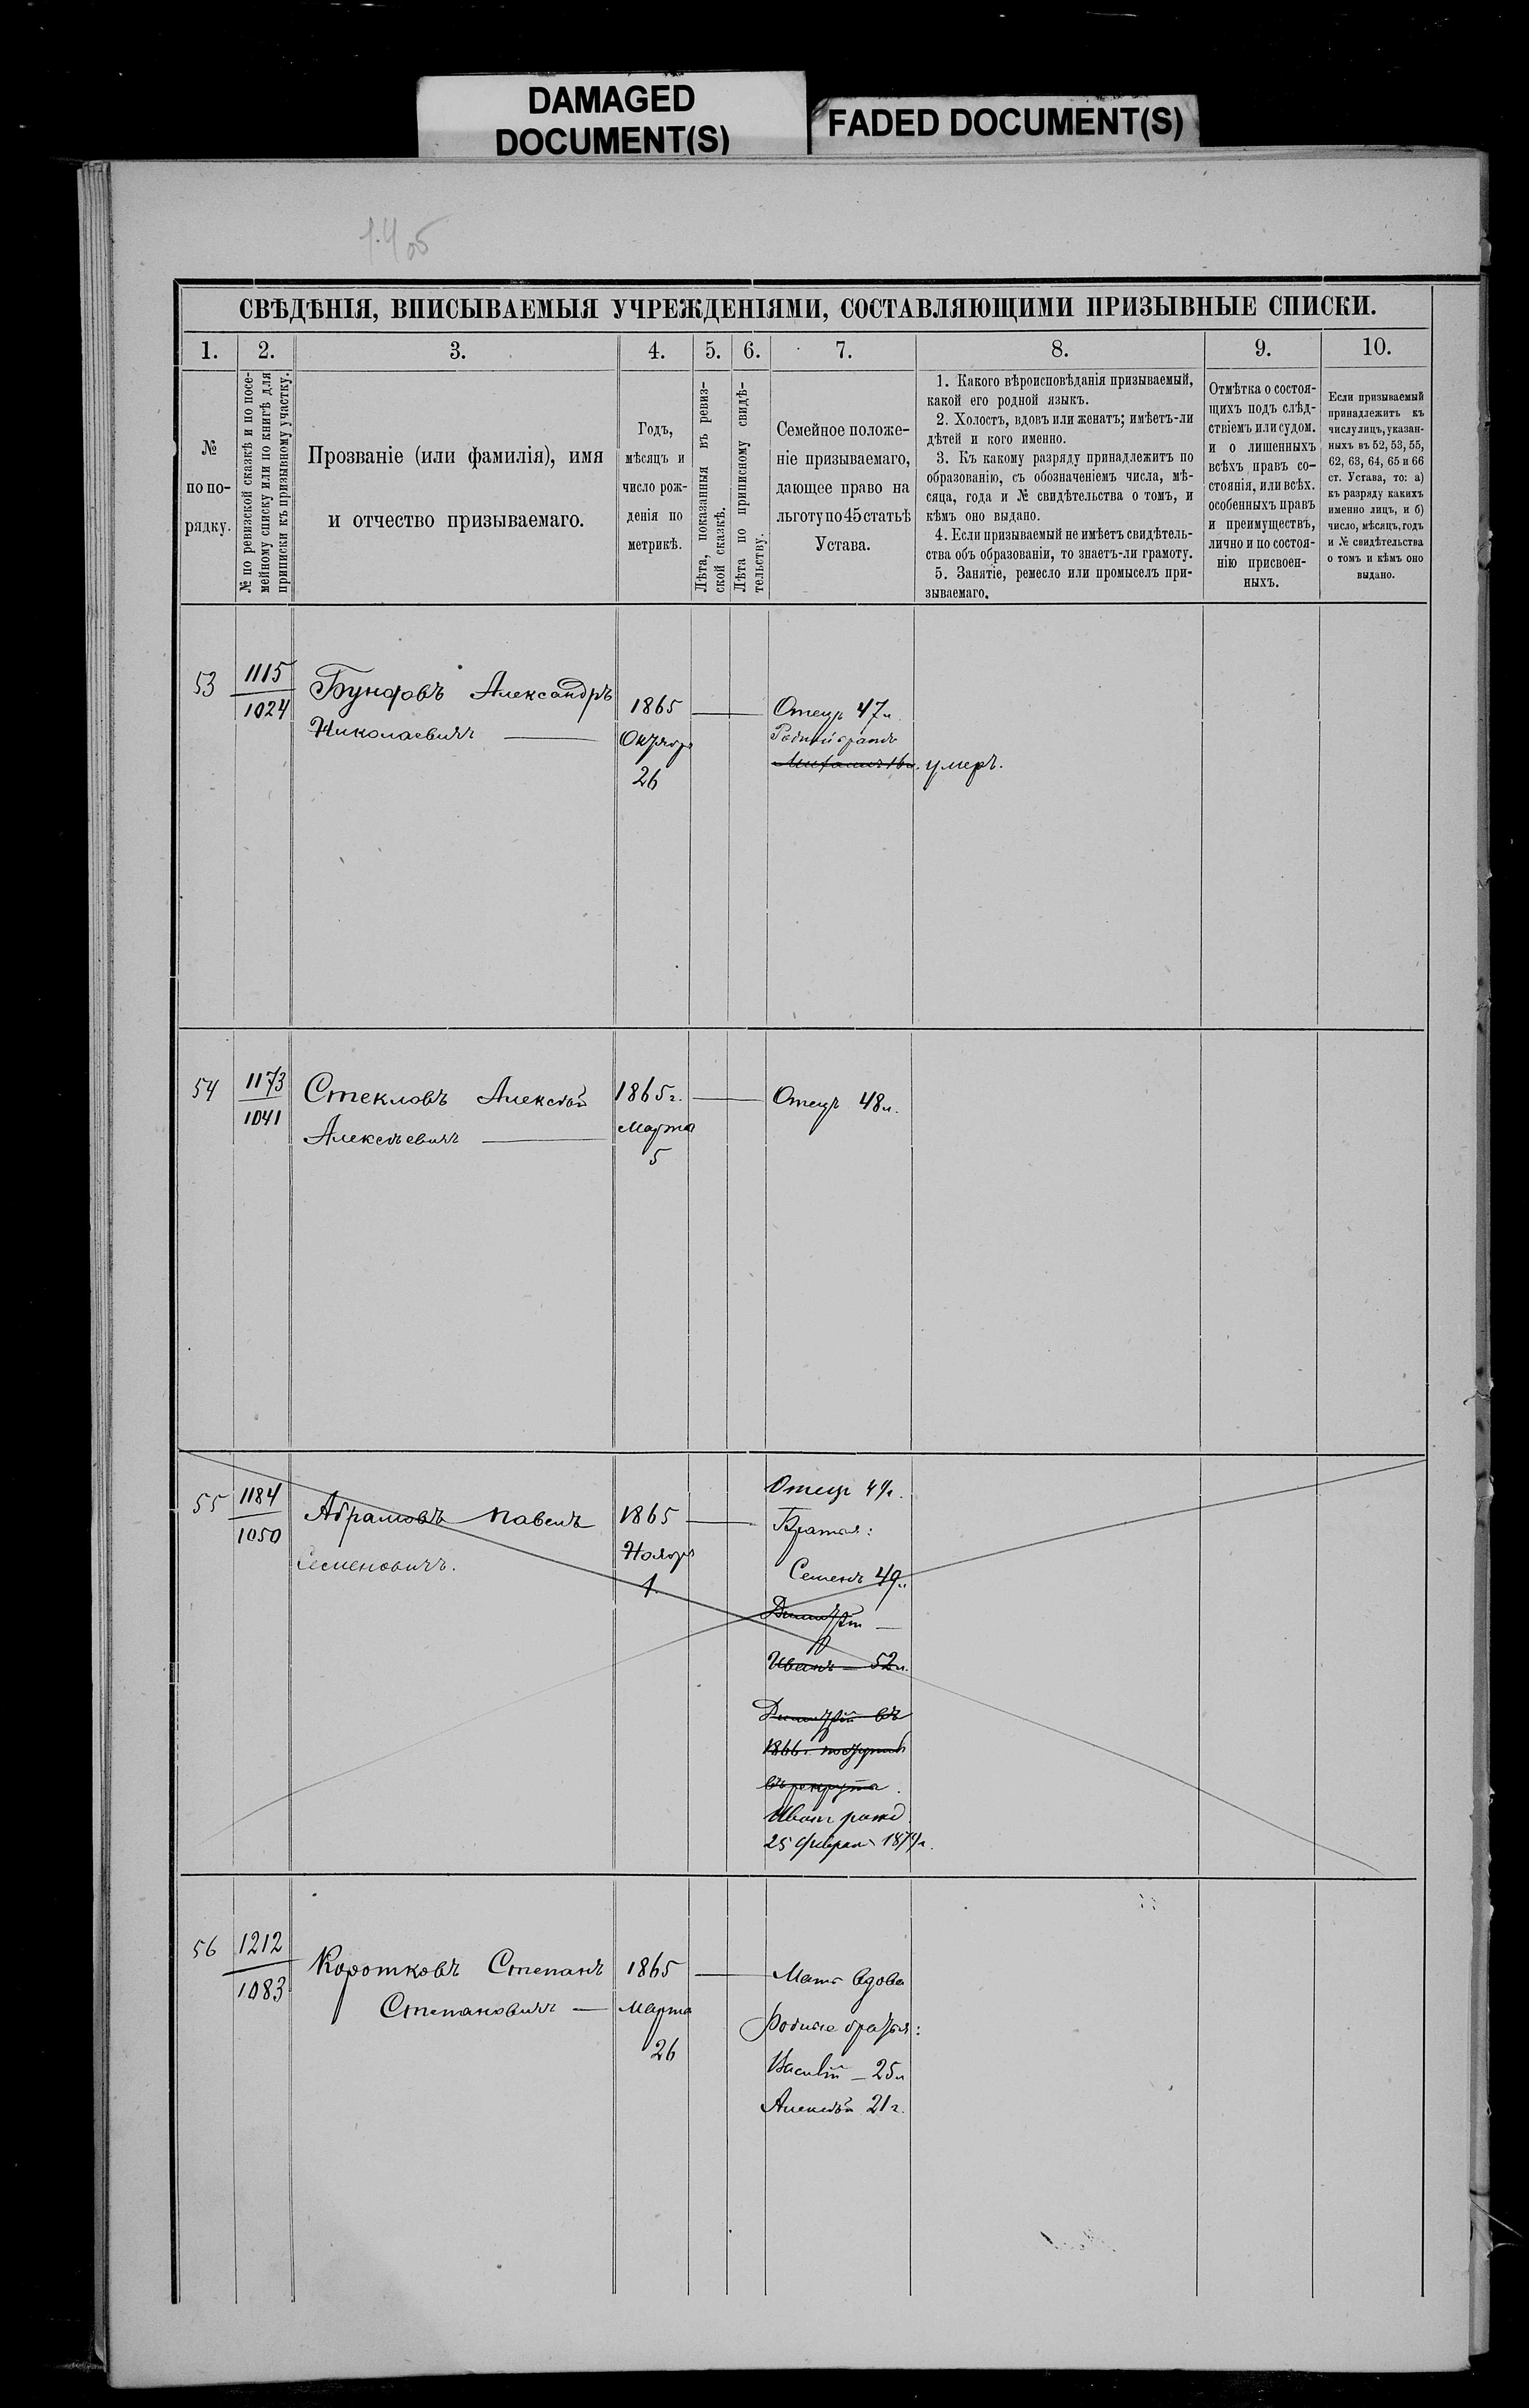 DAMAGED
DOCUMENT(S)
FADED DOCUMENT(S)
СВѢДѢНІЯ, ВПИСЫВАЕМЫЯ УЧРЕЖДЕНІЯМИ, СОСТАВЛЯЮЩИМИ ПРИЗЫВНЫЕ СПИСКИ.
1. 2. 3. 4. 5. 6. 7. 8. 9. 10.
№
по по-
рядку.
№ по ревизской сказкѣ и по посе-
мейному списку или по книгѣ для
приписки къ призывному участку.
Прозваніе (или фамилія), имя
и отчество призываемаго.
Годъ,
мѣсяцъ и
число рож-
денія по
метрикѣ.
Лѣта, показанныя въ ревиз-
ской сказкѣ.
Лѣта по приписному свидѣ-
тельству.
Семейное положе-
ніе призываемаго,
дающее право на
льготу по 45 статьѣ
Устава.
1. Какого вѣроисповѣданія призываемый,
какой его родной языкъ.
2. Холостъ, вдовъ или женатъ; имѣетъ-ли
дѣтей и кого именно.
3. Къ какому разряду принадлежитъ по
образованію, съ обозначеніемъ числа, мѣ-
сяца, года и № свидѣтельства о томъ, и
кѣмъ оно выдано.
4. Если призываемый не имѣетъ свидѣтель-
ства объ образованіи, то знаетъ-ли грамоту.
5. Занятіе, ремесло или промыселъ при-
зываемаго.
Отмѣтка о состоя-
щихъ подъ слѣд-
ствіемъ или судом.
и о лишенныхъ
всѣхъ правъ со-
стоянія, или всѣх.
особенныхъ правъ
и преимуществъ,
лично и по состоя-
нію присвоен-
ныхъ.
Если призываемый
принадлежитъ къ
числу лицъ, указан-
ныхъ въ 52, 53, 55,
62, 63, 64, 65 и 66
ст. Устава, то: а)
къ разряду какихъ
именно лицъ, и б)
число, мѣсяцъ, годъ
и № свидѣтельства
о томъ и кѣмъ оно
выдано.
53
1115
1024
Александръ
Николаевичъ
1865
Октябр
26
Отецъ 47л.
Родной братъ
Михаилъ 16л. умеръ.
54
1173
1041
Стекловъ Алексѣй
Алексѣевичъ
1865г.
Марта
5
Отецъ 48л.
55
1184
1050
Абрамовъ Павелъ
Семеновичъ.
1865
Ноябр
1.
Отецъ
Братья:
Семенъ
Дмитрій —
Иванъ — 52л.
Дмитрій въ
1866г. поступилъ
въ рекруты.
Иванъ рожд
25 Февраля
56
1212
1083
Коротковъ Степанъ
Степановичъ —
1865
Марта
26
Мать вдова
Родные братья:
Василій — 25л
Алексѣй 21г.